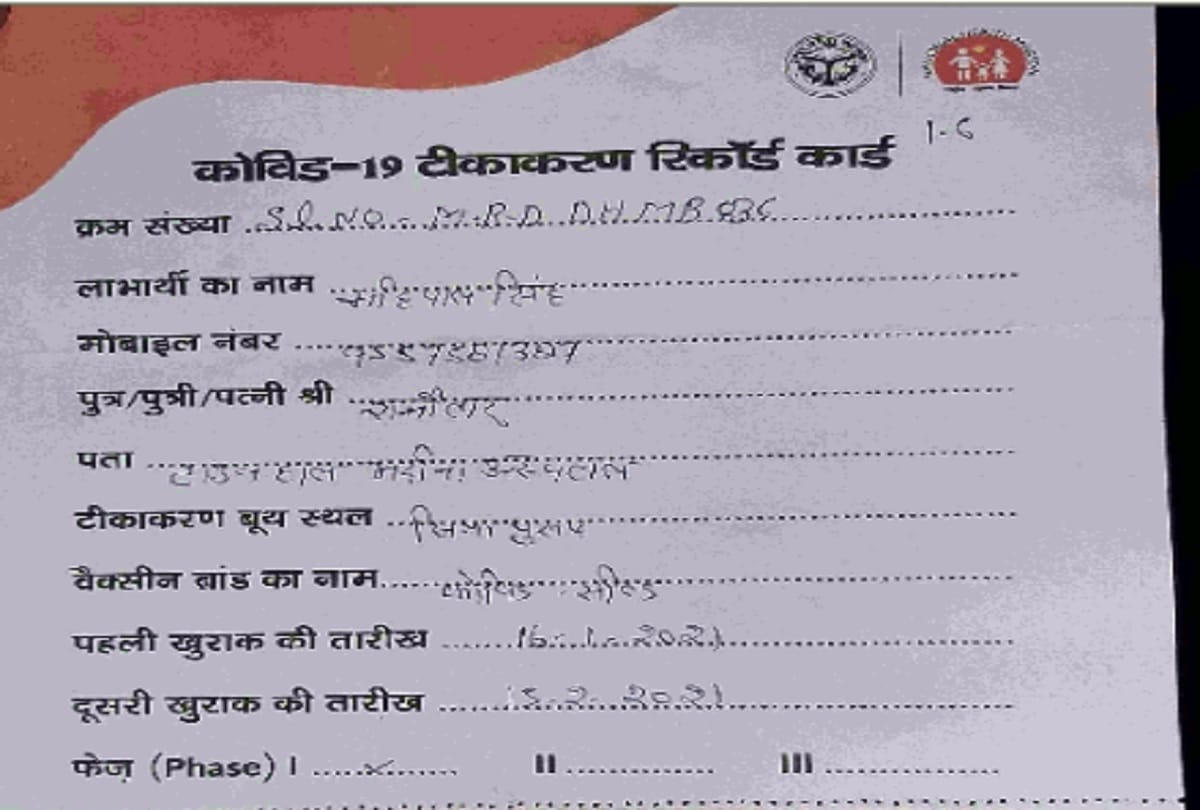 1-6
कोविड-19 टीकाकरण रिकॉर्ड कार्ड
क्रम संख्या Sl. No. - M.R.D. D.H.MB.
लाभार्थी का नाम महिपाल सिंह
मोबाइल नंबर
पुत्र/पुत्री/पत्नी श्री
पता टाउन हाल अस्पताल
टीकाकरण बूथ स्थल
वैक्सीन ब्रांड का नाम कोविड सील्ड
पहली खुराक की तारीख 16.1.2021
दूसरी खुराक की तारीख 15.2.2021
फेज़ (Phase) I x II III